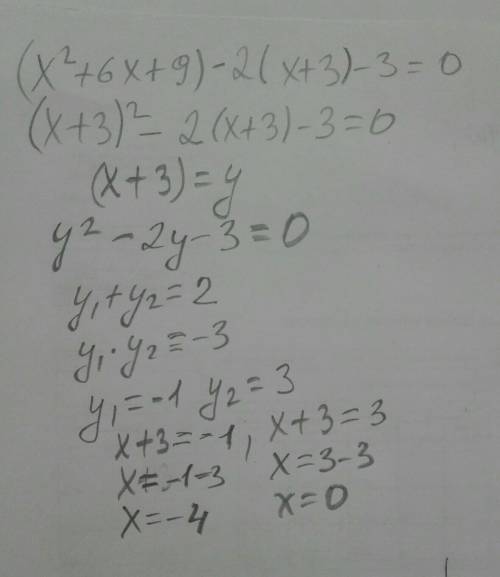 (x²+6x+9)-2(x+3)-3=0
(x+3)²-2(x+3)-3=0
(x+3)=y
y²-2y-3=0
y₁+y₂=2
y₁·y₂=-3
y₁=-1 y₂=3
x+3=-1, x+3=3
x=-1-3 x=3-3
x=-4 x=0